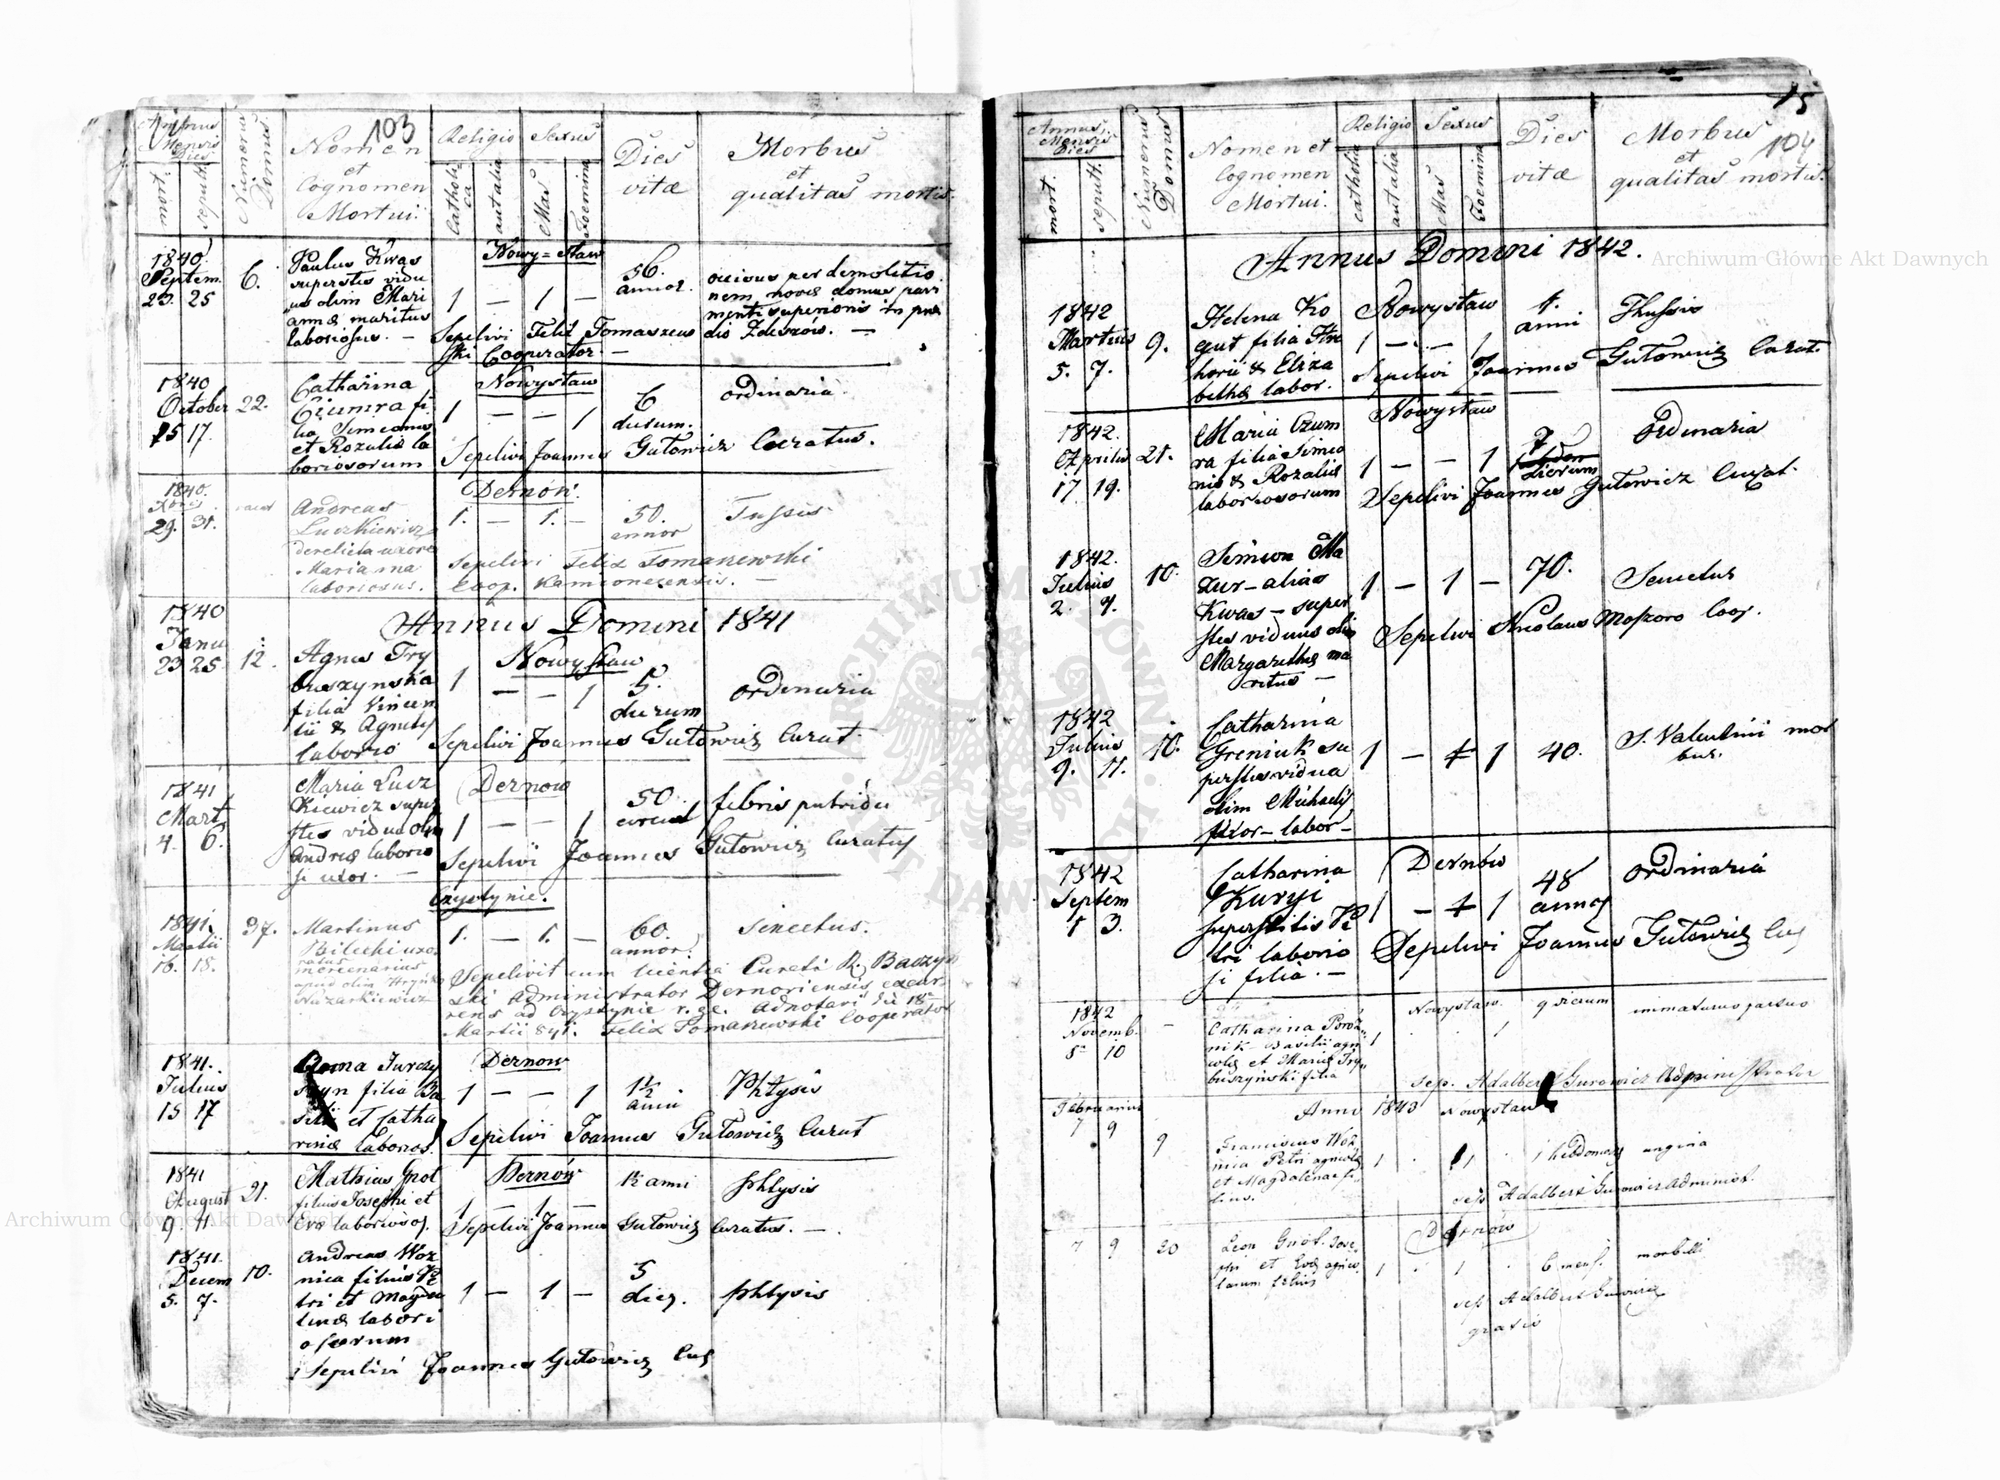 103
Annus
Mensis
Dies
mort.
sepult.
Numerus
Domus
Nomen
et
Cognomen
Mortui.
Religio
Catholica
aut alia
Sexus
Mas
Foemina
Dies
vitæ
Morbus
et
qualitas mortis.
1840
Septem.
23. 25
6.
Paulus Kwas
superstes vidu
us olim Mari
annæ maritus
laboriosus. —
Nowy=staw
1 — 1 —
56.
annor.
occisus per demolitio
nem novæ domus pavi
menti superioris in præ
dio Zdeszów. —
Sepelivi Felix Tomaszews
ski Cooperator —
1840
October
15 17.
22.
Catharina
Czumra fi
lia Simeonis
et Rozaliæ la
boriosorum
Nowystaw
1 — — 1
6
dierum.
ordinaria
Sepelivi Joannes Gutowicz Curatus.
1840.
Xbris
29. 31.
Andreas
Luczkiewicz
derelicta uxore
Marianna
laboriosus.
Dernów.
1. — 1. —
50.
annor
Tussis
Sepelivi Felix Tomaszewski
Coop. Kamionecensis. —
Annus Domini 1841
1840
Janu
23 25.
12.
Agnes Try
buszynska
filia Vincen
tii & Agnetis
laborio
Nowystaw
1 — — 1
5.
dierum
ordinaria
Sepelivi Joannes Gutowicz Curat.
1841
Mart.
4. 6.
Maria Lucz
kiewicz super
stes vidua olim
Andreæ laborio
si uxor. —
Dernów
1 — — 1
50
circa
febris putrida
Sepelivi Joannes Gutowicz Curatus
Czystynie.
1841.
Martii
16. 18.
37.
Martinus
Bilecki uxo
ratus
mercenarius
apud olim Hryńko
Nazarkiewicz
1. — 1. —
60.
annor.
Senectus.
Sepelivit cum licentia Curati R. Baczyń
ski Administrator Dernoviensis excur
rens ad Czystynie r. gr. Adnotavi die 18a
Martii 841. Felix Tomaszewski Cooperator
1841.
Julius
15 17
Anna Jurczy
szyn filia Ba
silii et Catha
rinæ laborios.
Dernow
1 — — 1
1½
anni
Phtysis
Sepelivi Joannes Gutowicz Curat
1841
August
9. 11.
21.
Mathias Gnot
filius Josephi et
Evæ laboriosor.
Dernów
1 — 1 —
12 anni
phtysis
Sepelivi Joannes Gutowicz Curatus. —
1841.
Decem
5. 7.
10.
Andreas Woz
nica filius Pe
tri et Magda
lenæ labori
osorum
1 — 1 —
5
dies.
phtysis
Sepelivi Joannes Gutowicz Cur
15
104
Annus
Mensis
Dies
mort.
sepult.
Numerus
Domus
Nomen et
Cognomen
Mortui.
Religio
catholica
aut alia
Sexus
Mas
Foemina
Dies
vitæ
Morbus
et
qualitas mortis.
Annus Domini 1842.
1842
Martius
5. 7.
9.
Helena Ko
gut filia Hre
horii & Eliza
bethæ labor.
Nowystaw
1 — — 1
4.
anni
Thussis
Sepelivi Joannes Gutowicz Curat.
1842.
Aprilis
17 19.
21.
Maria Czum
ra filia Simeo
nis & Rozaliæ
laboriosorum
Nowystaw
1 — — 1
7
dierum
Ordinaria
Sepelivi Joannes Gutowicz Curat.
1842
Julius
2. 4.
10.
Simeon Ma
zur — alias
Kwas — super
stes viduus olim
Margarethæ ma
ritus —
1 — 1 —
70.
Senectus
Sepelivi Nicolaus Moszoro Coop.
1842
Julius
9. 11.
10.
Catharina
Greniuk su
perstes vidua
olim Michaelis
uxor — labor —
1 — 1 1
40.
S. Valentini mor
bus.
1842
Septem
1 3.
Catharina
Kuryj
superstitis Pe
tri laborio
si filia. —
Dernów
1 — 1 1
48
annos
Ordinaria
Sepelivi Joannes Gutowicz Cur
1842
Novemb.
8 10
—
Catharina Poróż
nik Basilii agri
colæ et Mariæ Try
buszyński filia
Nowystaw.
1 . . 1
9 dierum
immaturus partus
sep. Adalbert Gurowicz Administrator
Anno 1843 Nowystaw
Februarius
7 9
9
Franciscus Woź
nica Petri agricolæ
et Magdalenæ fi
lius.
1 . 1 .
1 hebdomas
angina
sep. Adalbert Gurowicz Administ.
7 9
20
Leon Gnot. Jose
phi et Evæ agrico
larum filius
Dernów
1 . 1 .
6 mens.
morbilli
sep. Adalbert Gurowicz
gratis
Archiwum Główne Akt Dawnych
Archiwum Główne Akt Dawnych
ARCHIWUM GŁÓWNE AKT DAWNYCH